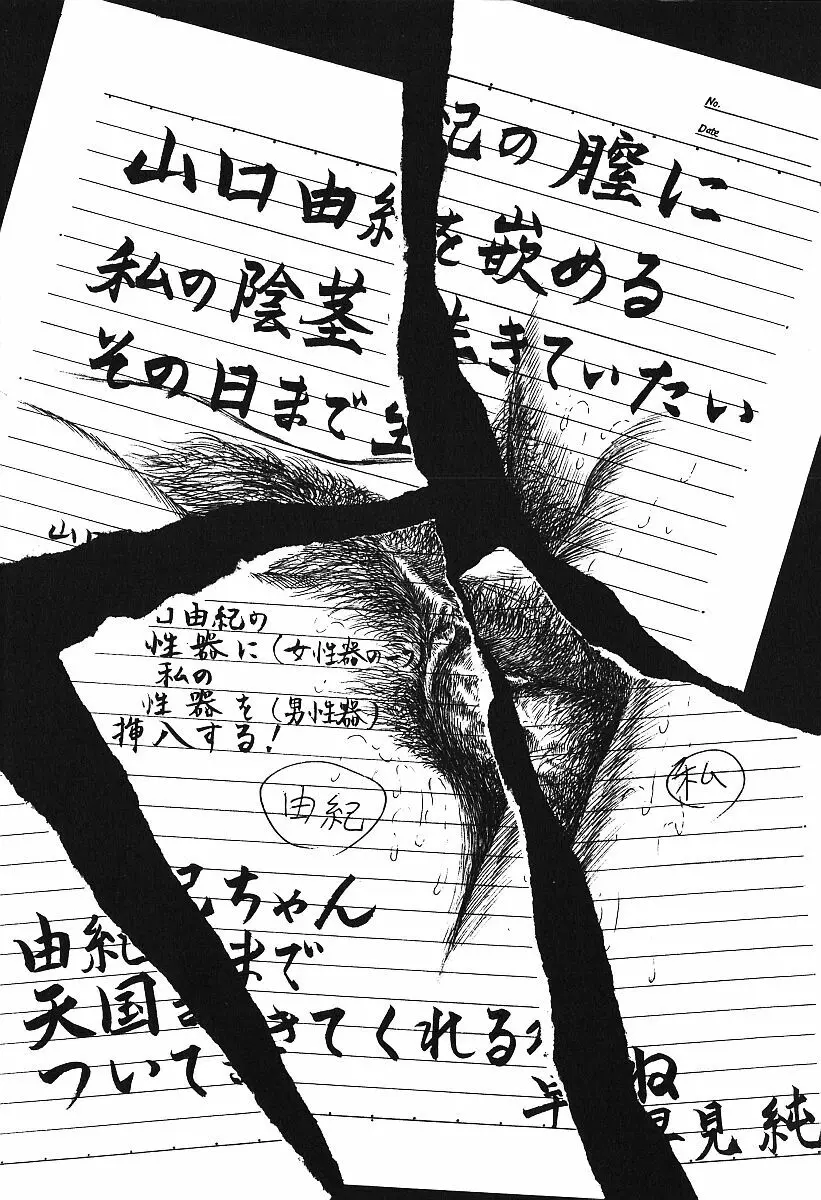 No.
Date
山口由紀の膣に
私の陰茎を嵌める
その日まで生きていたい
山口
口由紀の
性器に(女性器の一つ)
私の
性器を(男性器)
挿入する!
由紀
私
紀ちゃん
由紀 まで
天国ま
ついてきてくれるね
早見純